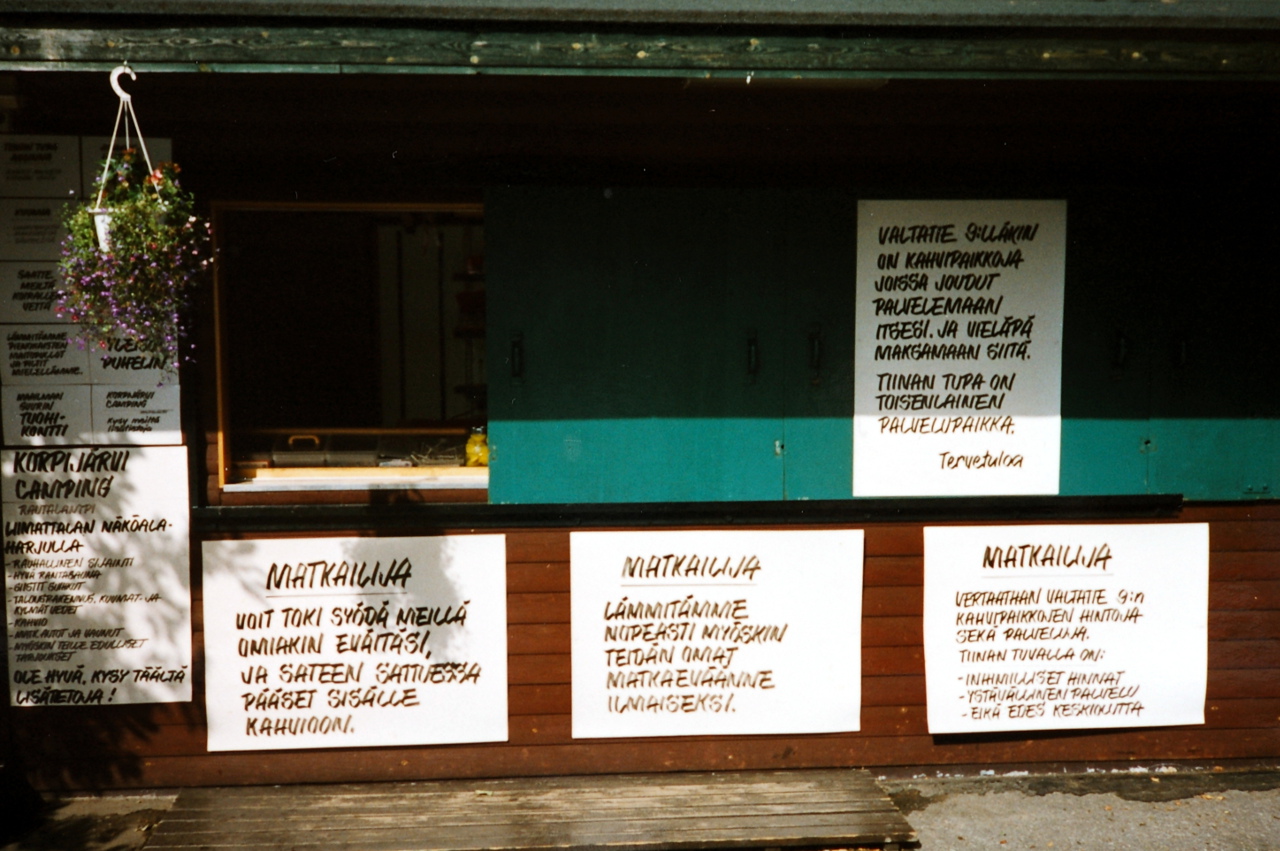 TIINAN TUPA
SAATTE
MEILTÄ
KOIRALLE
VETTÄ
LÄMMITÄMME
PIENOKAISTEN
MAITOPULLOT
JA PILTIT
MIELELLÄMME.
YLEISÖ-
PUHELIN
MAAILMAN
SUURIN
TUOHI-
KONTTI
KORPIJÄRVI
CAMPING
Kysy meiltä
lisätietoja
KORPIJÄRVI
CAMPING
RAUTALAMPI
LIIMATTALAN NÄKÖALA-
HARJULLA
- RAUHALLINEN SIJAINTI
- HYVÄ RANTASAUNA
- SIISTIT
- TALONSRAKENNUS, KUUMAT- JA
KYLMÄT VEDET
- KAHVIO
- MATK.AUTOT JA VAUNUT
- MYÖSKIN TEILLE EDULLISET
TARJOUKSET
OLE HYVÄ, KYSY TÄÄLTÄ
LISÄTETOJA!
VALTATIE 9:LLÄKIN
ON KAHVIPAIKKOJA
JOISSA JOUDUT
PALVELEMAAN
ITSESI. JA VIELÄPÄ
MAKSAMAAN SIITÄ.
TIINAN TUPA ON
TOISENLAINEN
PALVELUPAIKKA.
Tervetuloa
MATKAILIJA
VOIT TOKI SYÖDÄ MEILLÄ
OMIAKIN EVÄITÄSI,
JA SATEEN SATTUESSA
PÄÄSET SISÄLLE
KAHVIOON.
MATKAILIJA
LÄMMITÄMME
NOPEASTI MYÖSKIN
TEIDÄN OMAT
MATKAEVÄÄNNE
ILMAISEKSI.
MATKAILIJA
VERTAATHAN VALTATIE 9:n
KAHVIPAIKKOJEN HINTOJA
SEKÄ PALVELUJA.
TIINAN TUVALLA ON:
- INHIMILLISET HINNAT
- YSTÄVÄLLINEN PALVELU
- EIKÄ EDES KESKIOLUTTA